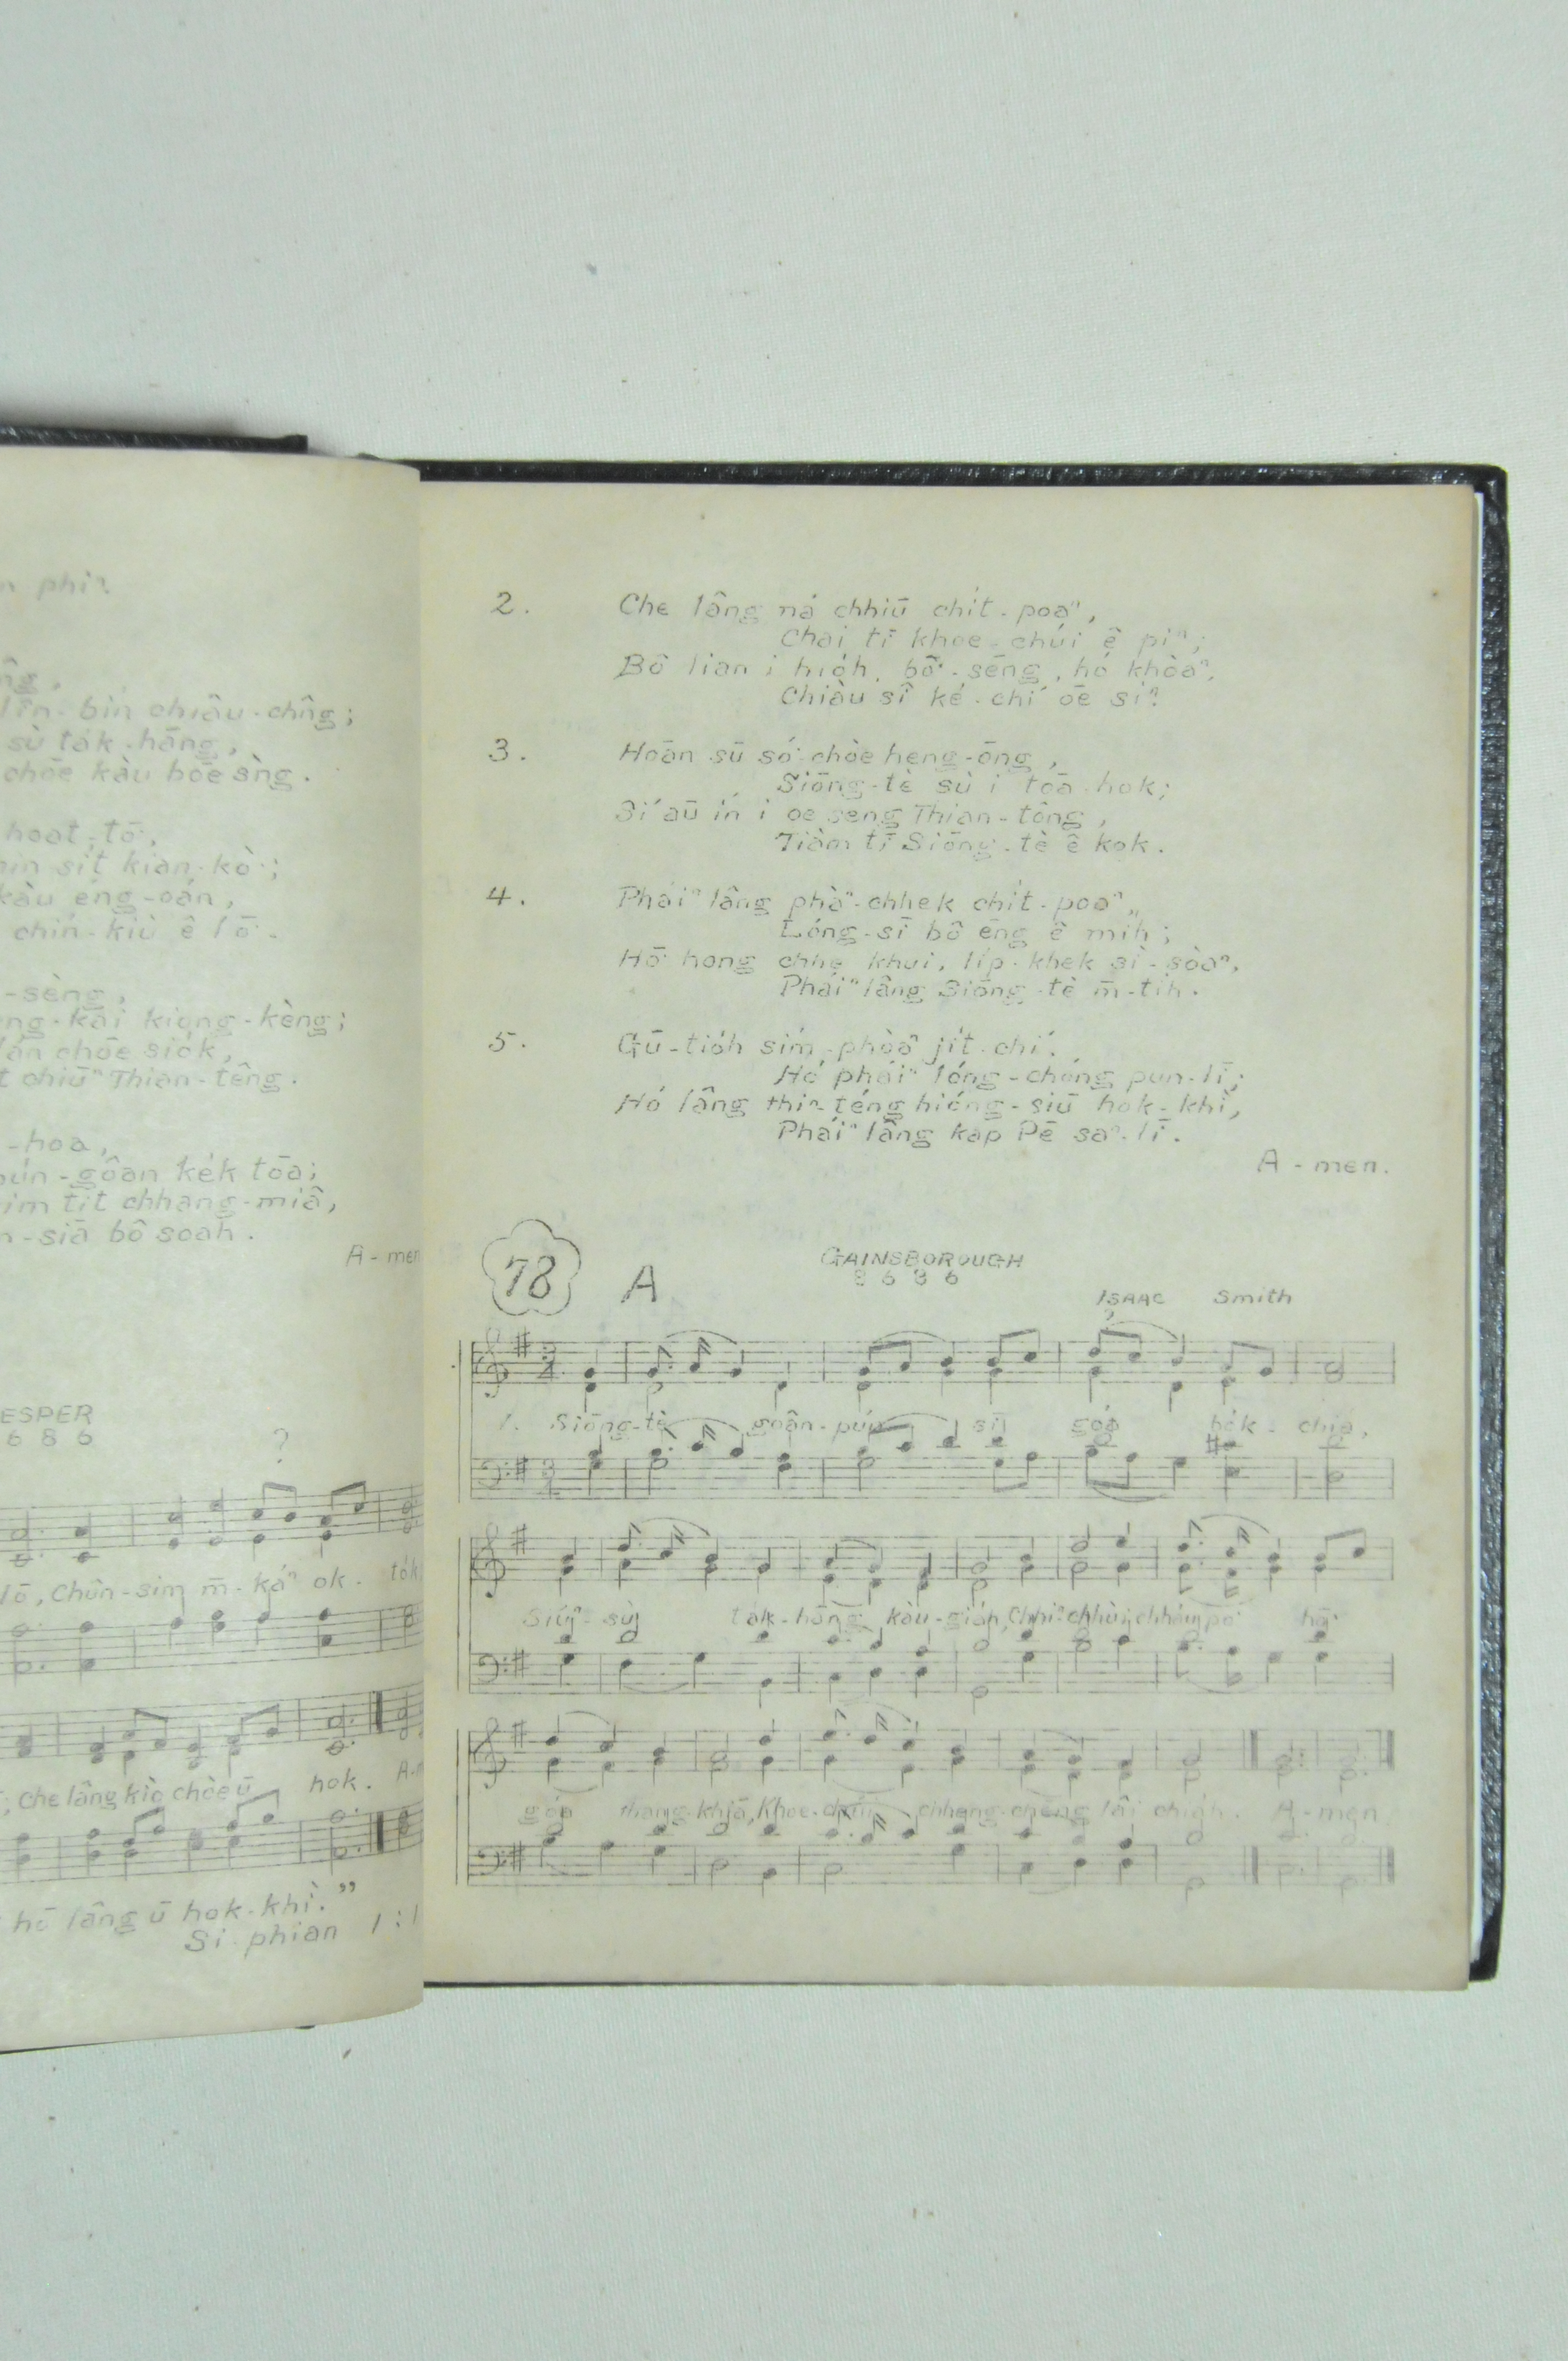 phiⁿ
lîn-bín chiâu-chn̂g;
sù ta̍k-hāng,
chōe kàu bōe sǹg.
hoat-tō͘,
si̍t kian-kò͘;
kàu éng-oán,
chín-kiù ê lō͘.
-sèng,
kai kiong-kèng;
lán chōe sio̍k,
chiūⁿ Thian-têng.
-hoa,
pún-gôan ke̍k tōa;
sim tit chheng-miâ,
-siā bô soah.
A-men
ESPER
6 8 6
?
lō͘, Chûn-sim m̄-káⁿ ok-to̍k
; Che lâng kiò chòe ū hok. A-m
hō͘ lâng ū hok-khì."
Si-phian 1:1
2. Che lâng ná chhiū chi̍t-poaⁿ,
Chai tī khoe-chúi ê piⁿ;
Bô lian i hio̍h, bō͘-sēng, hó khòaⁿ,
Chiàu sî ké-chí ōe siⁿ
3. Hoān sū só͘-chòe heng-ōng,
Siōng-tè sù i tōa hok;
Sí āu ín i oe seng Thian-tông,
Tiàm tī Siōng-tè ê kok.
4. Pháiⁿ lâng phàⁿ-chhek chi̍t-poaⁿ,
Lóng-sī bô ēng ê mih;
Hō͘ hong chhe khui, li̍p-khek sì-sòaⁿ,
Pháiⁿ lâng Siōng-tè m̄-tih.
5. Gū-tio̍h sím-phòaⁿ ji̍t-chí,
Hó pháiⁿ lóng-chóng pun-lī;
Hó lâng thiⁿ-téng hióng-siū hok-khì,
Pháiⁿ lâng kap Pē saⁿ-lī.
A-men.
78 A GAINSBOROUGH
8 6 8 6
ISAAC Smith
?
1. Siōng-tè goân-pún sī góa bo̍k-chiá,
Siúⁿ-sù ta̍k-hāng kàu-gia̍h, Chhiⁿ-chhùi chháu-po͘ hō͘
góa thang khiā, Khoe-chúi chheng-chēng lâi chia̍h. A-men